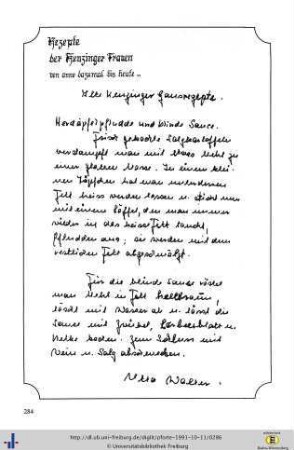 Rezepte
der Kenzinger Frauen
von anno dazumal bis heute ...
Alte Kenzinger Hausrezepte.
Herdäpfelpfludde und blinde Sauce.
Frisch gekochte Salzkartoffeln
verdampft man mit etwas Mehl zu
einer glatten Masse. In einem klei-
nen Töpfchen hat man
heiss werden lassen u. sticht nun
mit einem Löffel, den man immer
wieder in das heisse Fett taucht,
Pfludden aus; sie werden mit dem
restlichen Fett abgeschmälzt.
Für die blinde Sauce röstet
man Mehl in Fett hellbraun,
löscht mit Wasser ab u. lässt die
Sauce mit Zwiebel, Lorbeerblatt u.
Nelke kochen. Zum Schluss mit
Wein u. Salz abschmecken.
284
http://dl.ub.uni-freiburg.de/diglit/pforte-1991-10-11/0286
© Universitätsbibliothek Freiburg